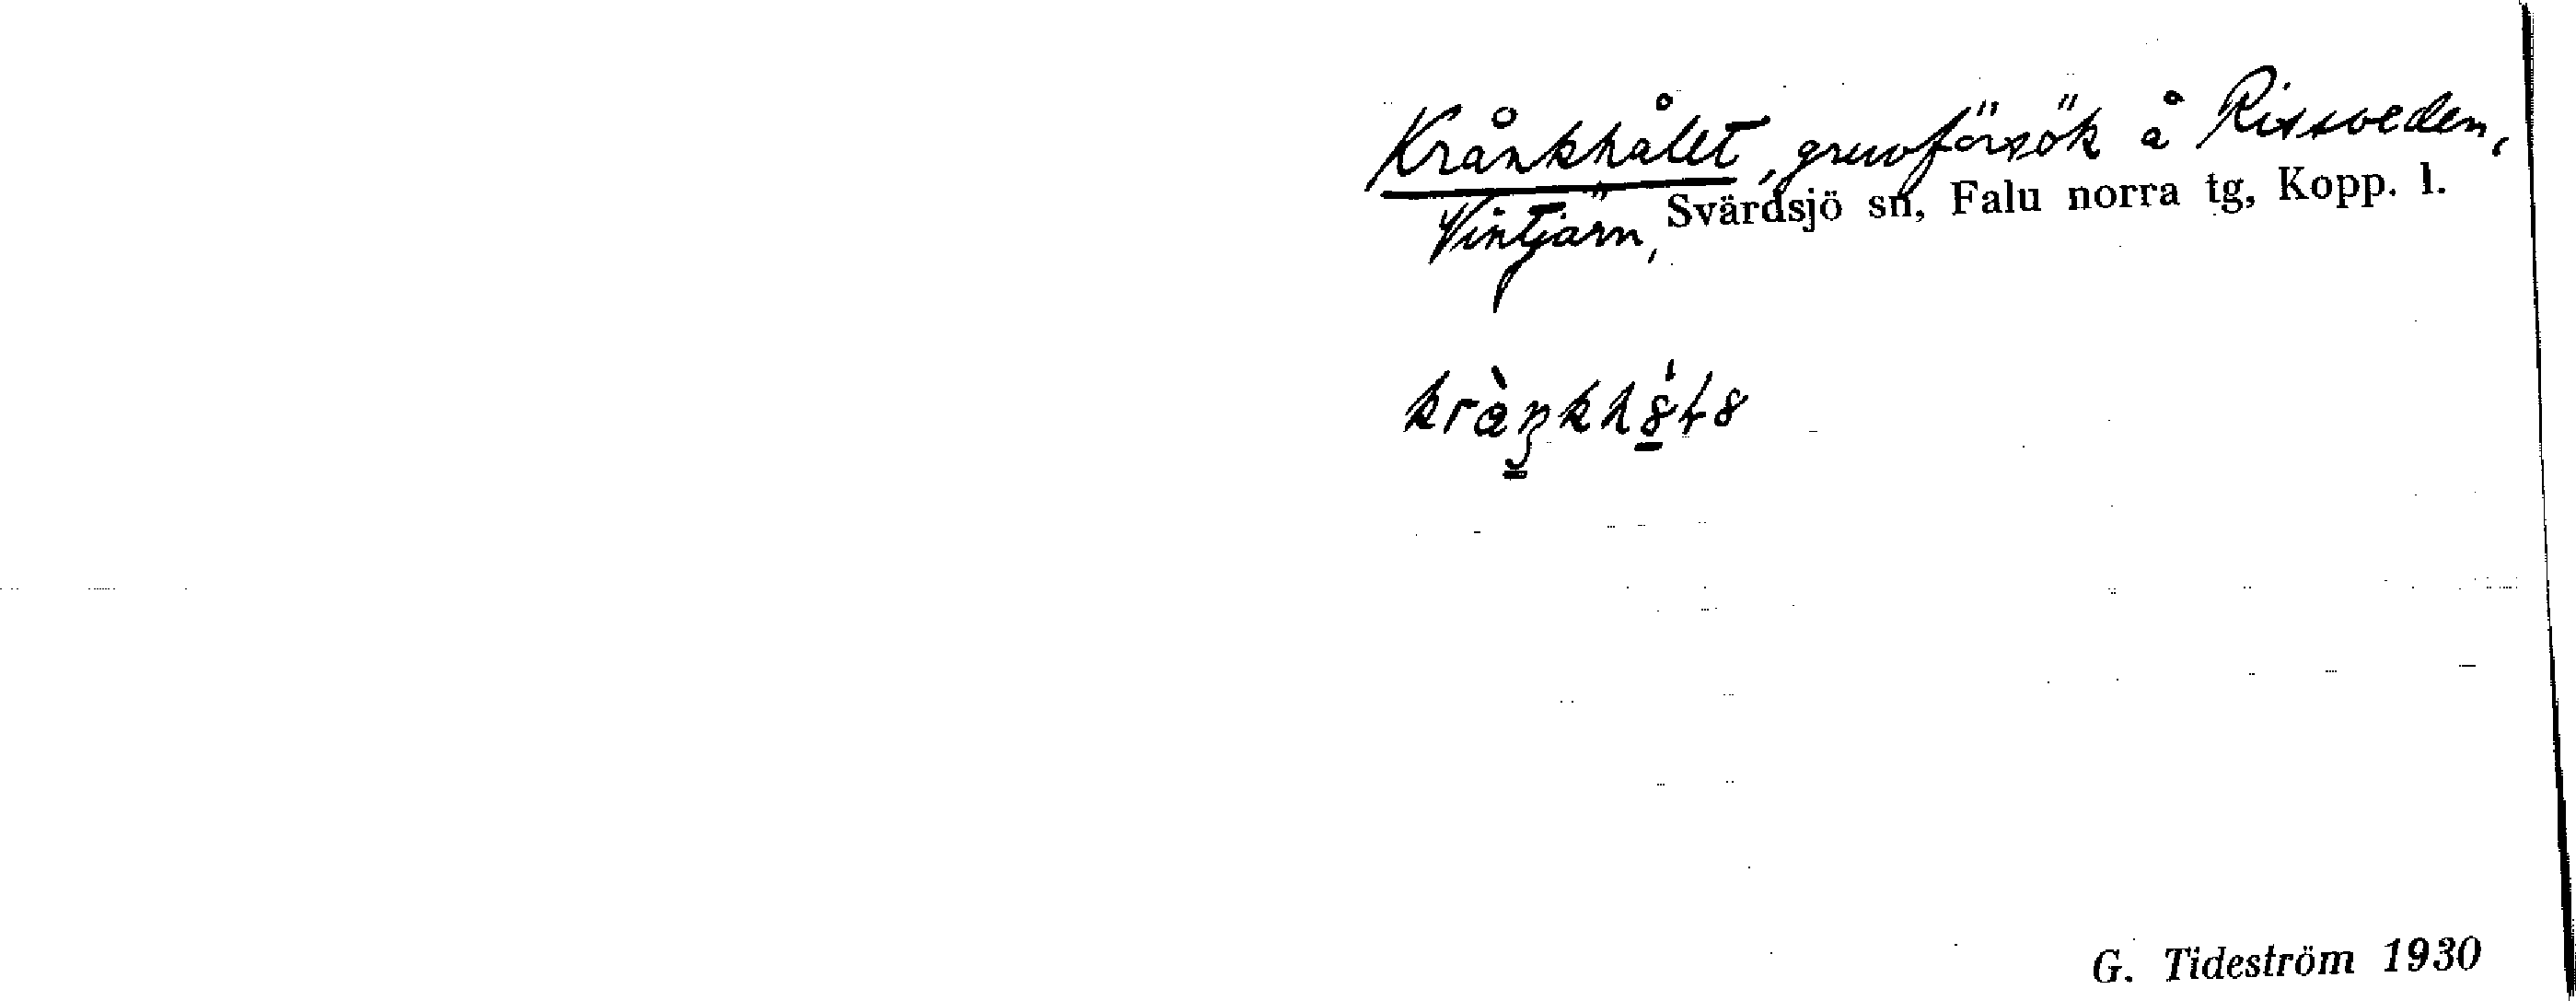 Krånkhålet, gruvförsök å Rissveden,
Vintjärn, Svärdsjö sn, Falu norra tg, Kopp. l.
G. Tideström 1930